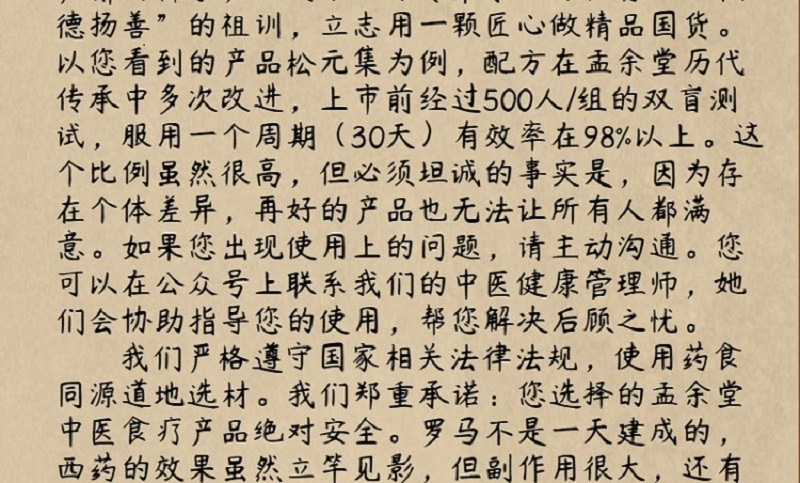 德扬善”的祖训，立志用一颗匠心做精品国货。
以您看到的产品松元集为例，配方在孟余堂历代
传承中多次改进，上市前经过500人/组的双盲测
试，服用一个周期（30天）有效率在98%以上。这
个比例虽然很高，但必须坦诚的事实是，因为存
在个体差异，再好的产品也无法让所有人都满
意。如果您出现使用上的问题，请主动沟通。您
可以在公众号上联系我们的中医健康管理师，她
们会协助指导您的使用，帮您解决后顾之忧。
我们严格遵守国家相关法律法规，使用药食
同源道地选材。我们郑重承诺：您选择的孟余堂
中医食疗产品绝对安全。罗马不是一天建成的，
西药的效果虽然立竿见影，但副作用很大，还有